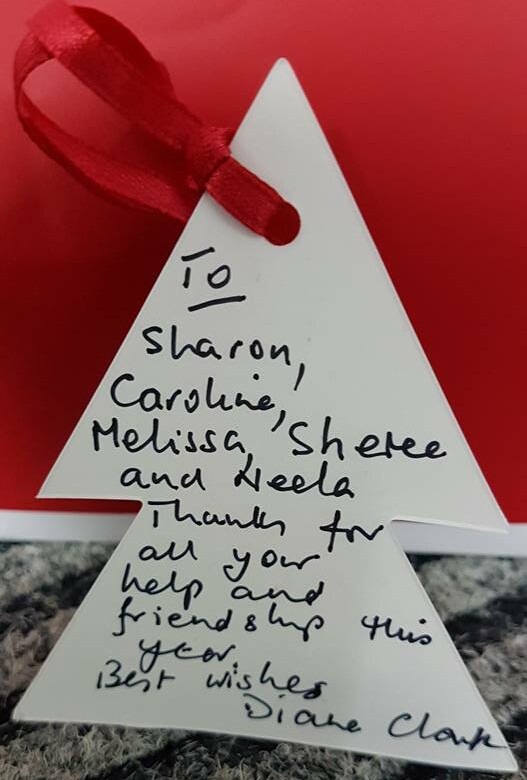 To
Sharon,
Caroline,
Melissa, Sheree
and Neela
Thanks for
all your
help and
friendship this
year.
Best wishes
Diane Clark